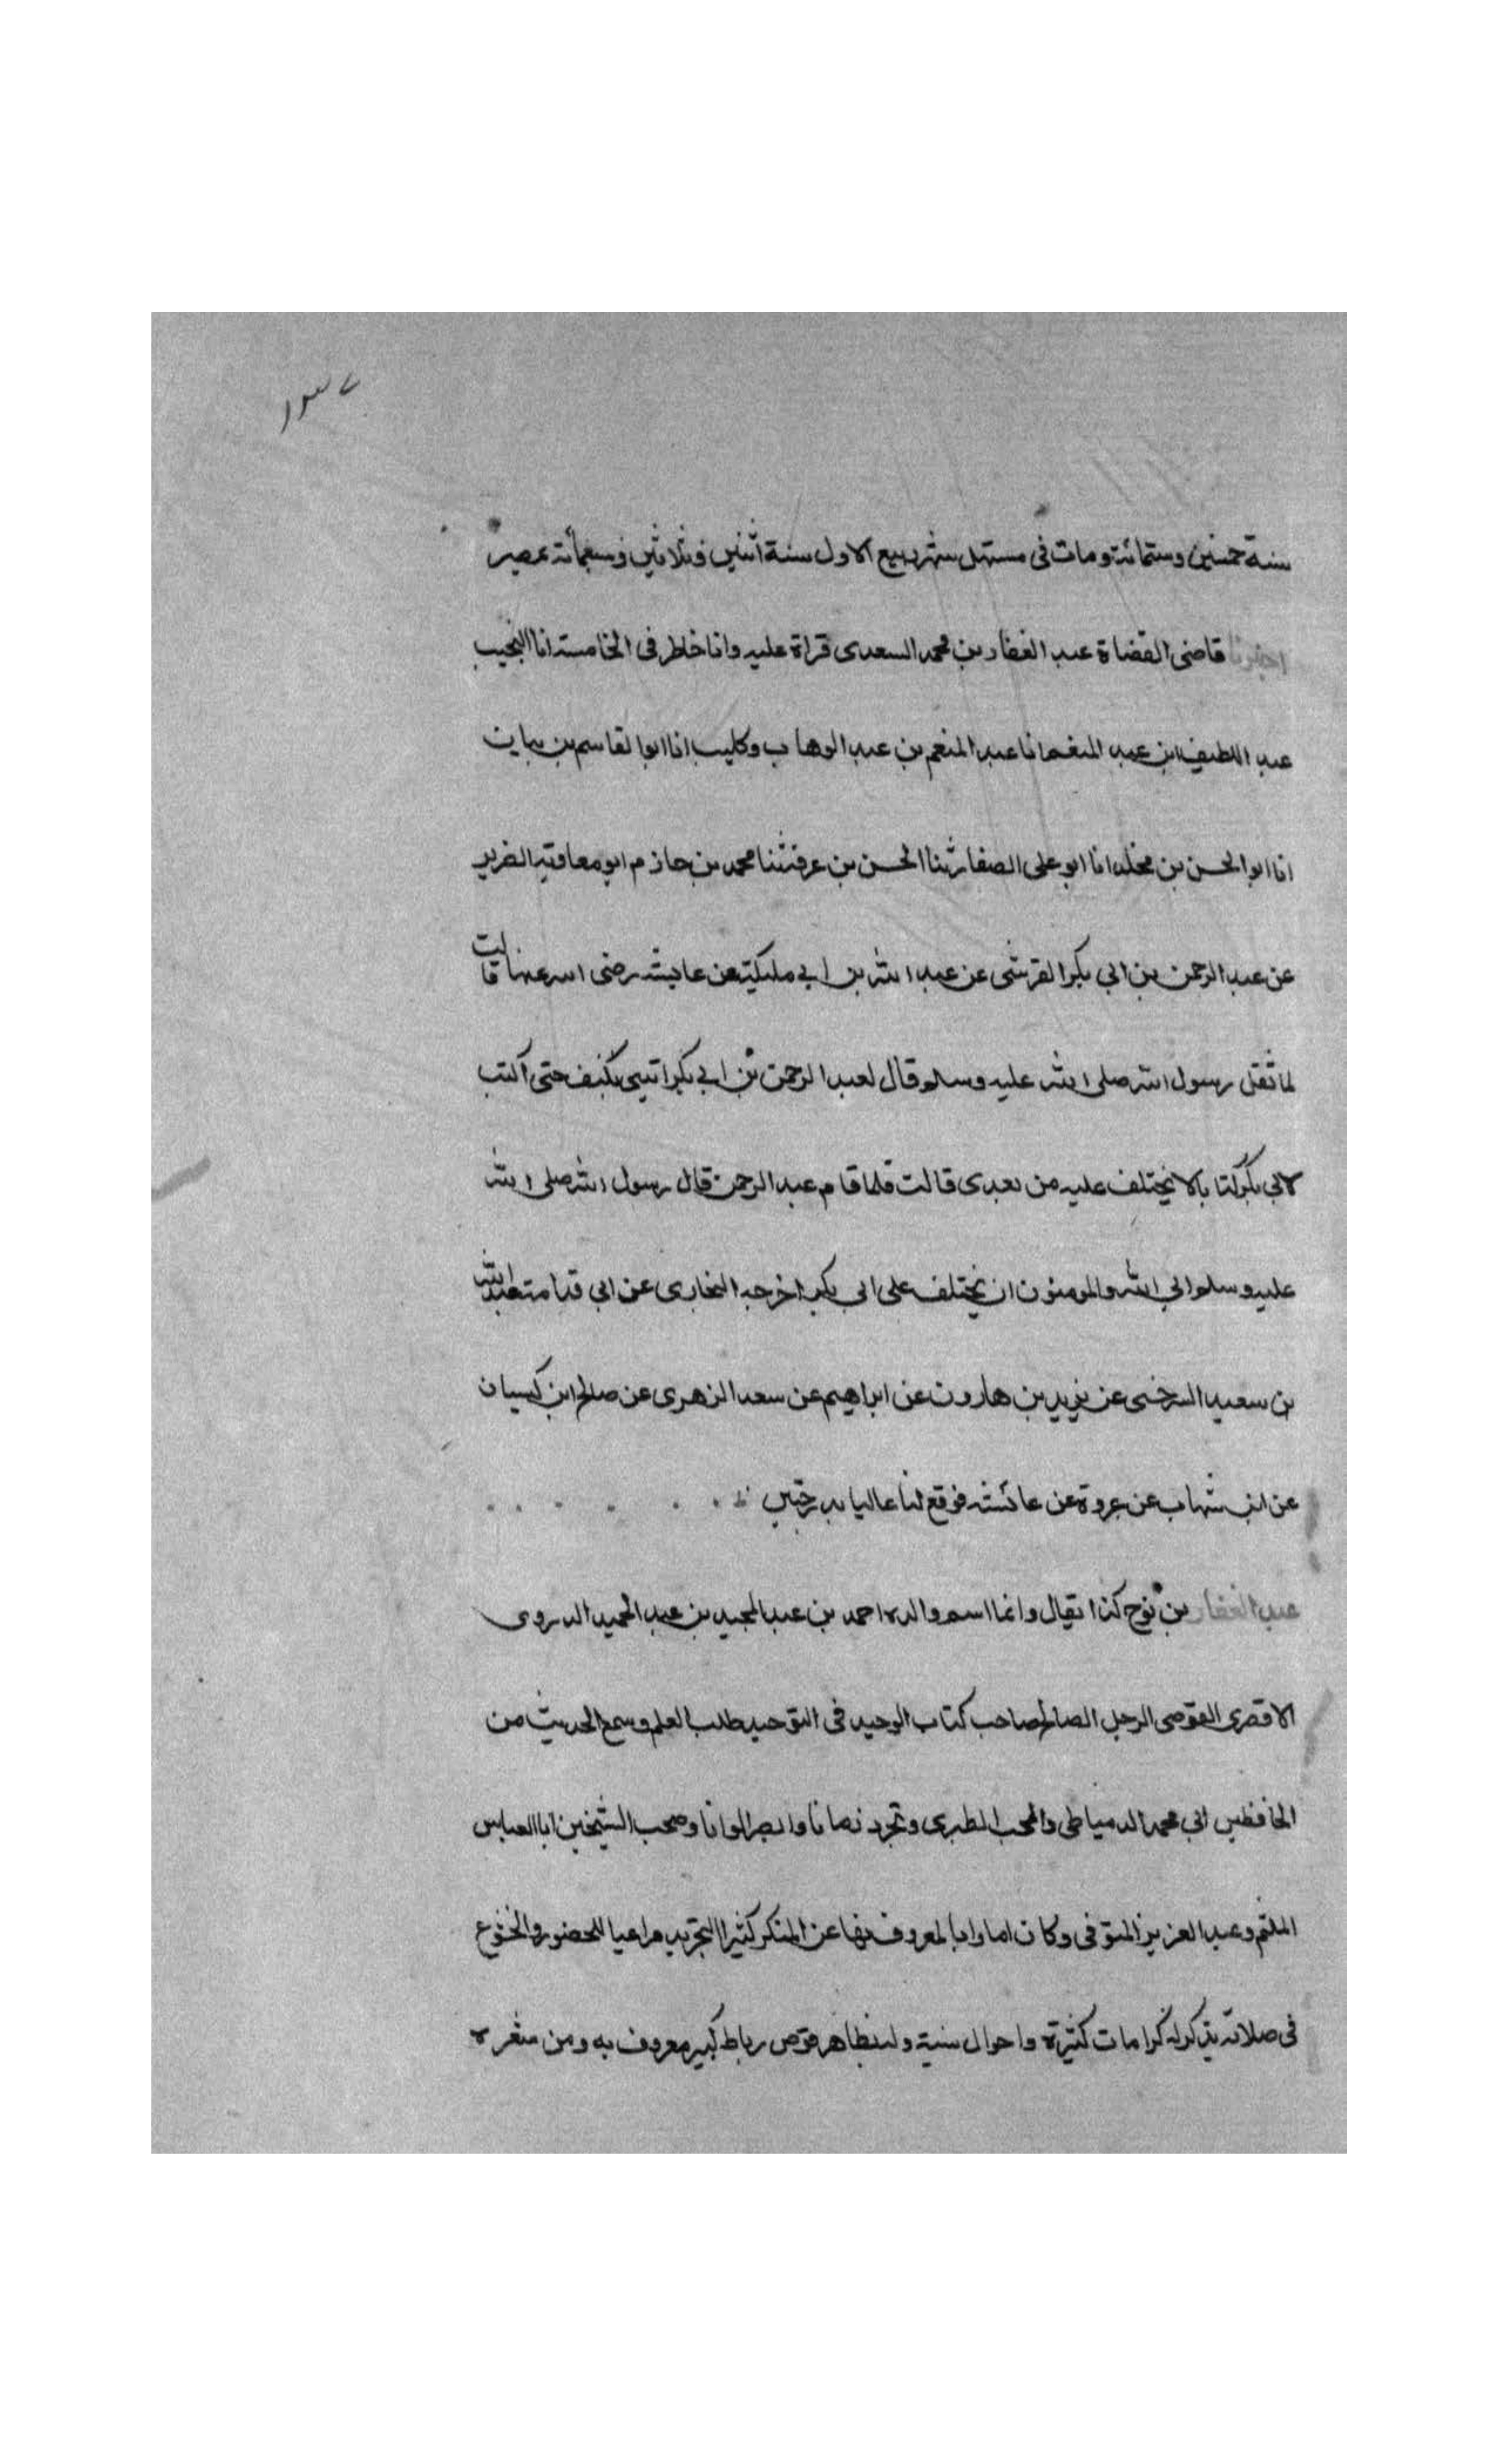 ١٣٧
سنة خمسين وستمائة ومات في مستهل شهر ربيع الاول سنة اثنين وثلاثين وسبعمائة بمصر
اخبرنا قاضى القضاة عبد الغفار بن محمد السعدى قراة عليه وانا خاطر فى الخامسة انا النجيب
عبد اللطيف ابن عبد المنعم انا عبد المنعم بن عبد الوهاب وكليب انا ابوا لقاسم بن بيان
انا ابوا لحسن بن مخلد انا ابو على الصفار ثنا الحسن بن عرفة ثنا محمد بن حازم ابو معاوية الضرير
عن عبد الرحمن بن ابي بكر القرشى عن عبد الله بن ابي مليكة عن عايشة رضى الله عنها قالت
لما ثقل رسول الله صلى الله عليه وسلم قال لعبد الرحمن بن ابي بكر اتينى بكتف حتى اكتب
لابي بكر كتابا لا يختلف عليه من بعدى قالت فلما قام عبد الرحمن قال رسول الله صلى الله
عليه وسلم ابي الله والمومنون ان يختلف على ابي بكر اخرجه البخارى عن ابي قدامة عبد الله
بن سعيد السرخسى عن يزيد بن هارون عن ابراهيم عن سعد الزهرى عن صالح ابن كيسان
عن ابن شهاب عن عروة عن عائشة فوقع لنا عاليا بدرجتين
عبد الغفار بن نوح كذا يقال وانما اسم والده احمد بن عبد المجيد بن عبد الحميد الدروى
الاقصرى القوصى الرجل الصالح صاحب كتاب الوحيد فى التوحيد طلب العلم وسمع الحديث من
الحافظين ابي محمد الدمياطى والمحب الطبرى وتجرد زمانا وابصر الوانا وصحب الشيخين ابا العباس
الملثم وعبد العزيز المنوفى وكان امارا بالمعروف نهاء عن المنكر كثير التجريد مراعيا للحضور والخشوع
فى صلاته يذكر له كرامات كثيرة واحوال سنية وله بظاهر قوص رباط كبير معروف به ومن شعره